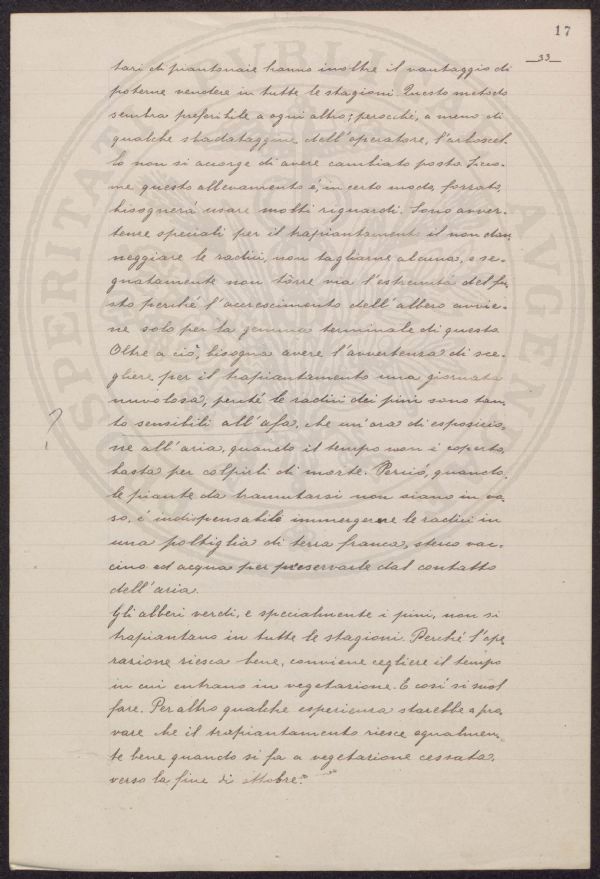 17
33
tari di piantonaie hanno inoltre il vantaggio di
poterne vendere in tutte le stagioni. Questo metodo
sembra preferibile a ogni altro; perocché, a meno di
qualche sbadataggine dell'operatore, l'arboscel-
lo non si accorge di avere cambiato posto. Sicco-
me questo allevamento è, in certo modo, forzato,
bisognerà usare molti riguardi. Sono avver-
tenze speciali per il trapiantamento il non dan-
neggiare le radici, non tagliarne alcuna, e se-
gnatamente non tòrre via l'estremità del fu-
sto perché l'accrescimento dell'albero avvie-
ne solo per la gemma terminale di questo.
Oltre a ciò, bisogna avere l'avvertenza di sce-
gliere per il trapiantamento una giornata
nuvolosa, perché le radici dei pini sono tan-
to sensibili all'afa, che un'ora di esposizio-
?
ne all'aria, quando il tempo non è coperto,
basta per colpirli di morte. Perciò, quando
le piante da tramutarsi non siano in va-
so, è indispensabile immergerne le radici in
una poltiglia di terra franca, sterco vac-
cino ed acqua per preservarle dal contatto
dell'aria.
Gli alberi verdi, e specialmente i pini, non si
trapiantano in tutte le stagioni. Perché l'ope-
razione riesca bene, conviene cegliere il tempo
in cui entrano in vegetazione. E così si suol
fare. Per altro qualche esperienza starebbe a pro-
vare che il trapiantamento riesce egualmen-
te bene quando si fa a vegetazione cessata,
verso la fine di ottobre."